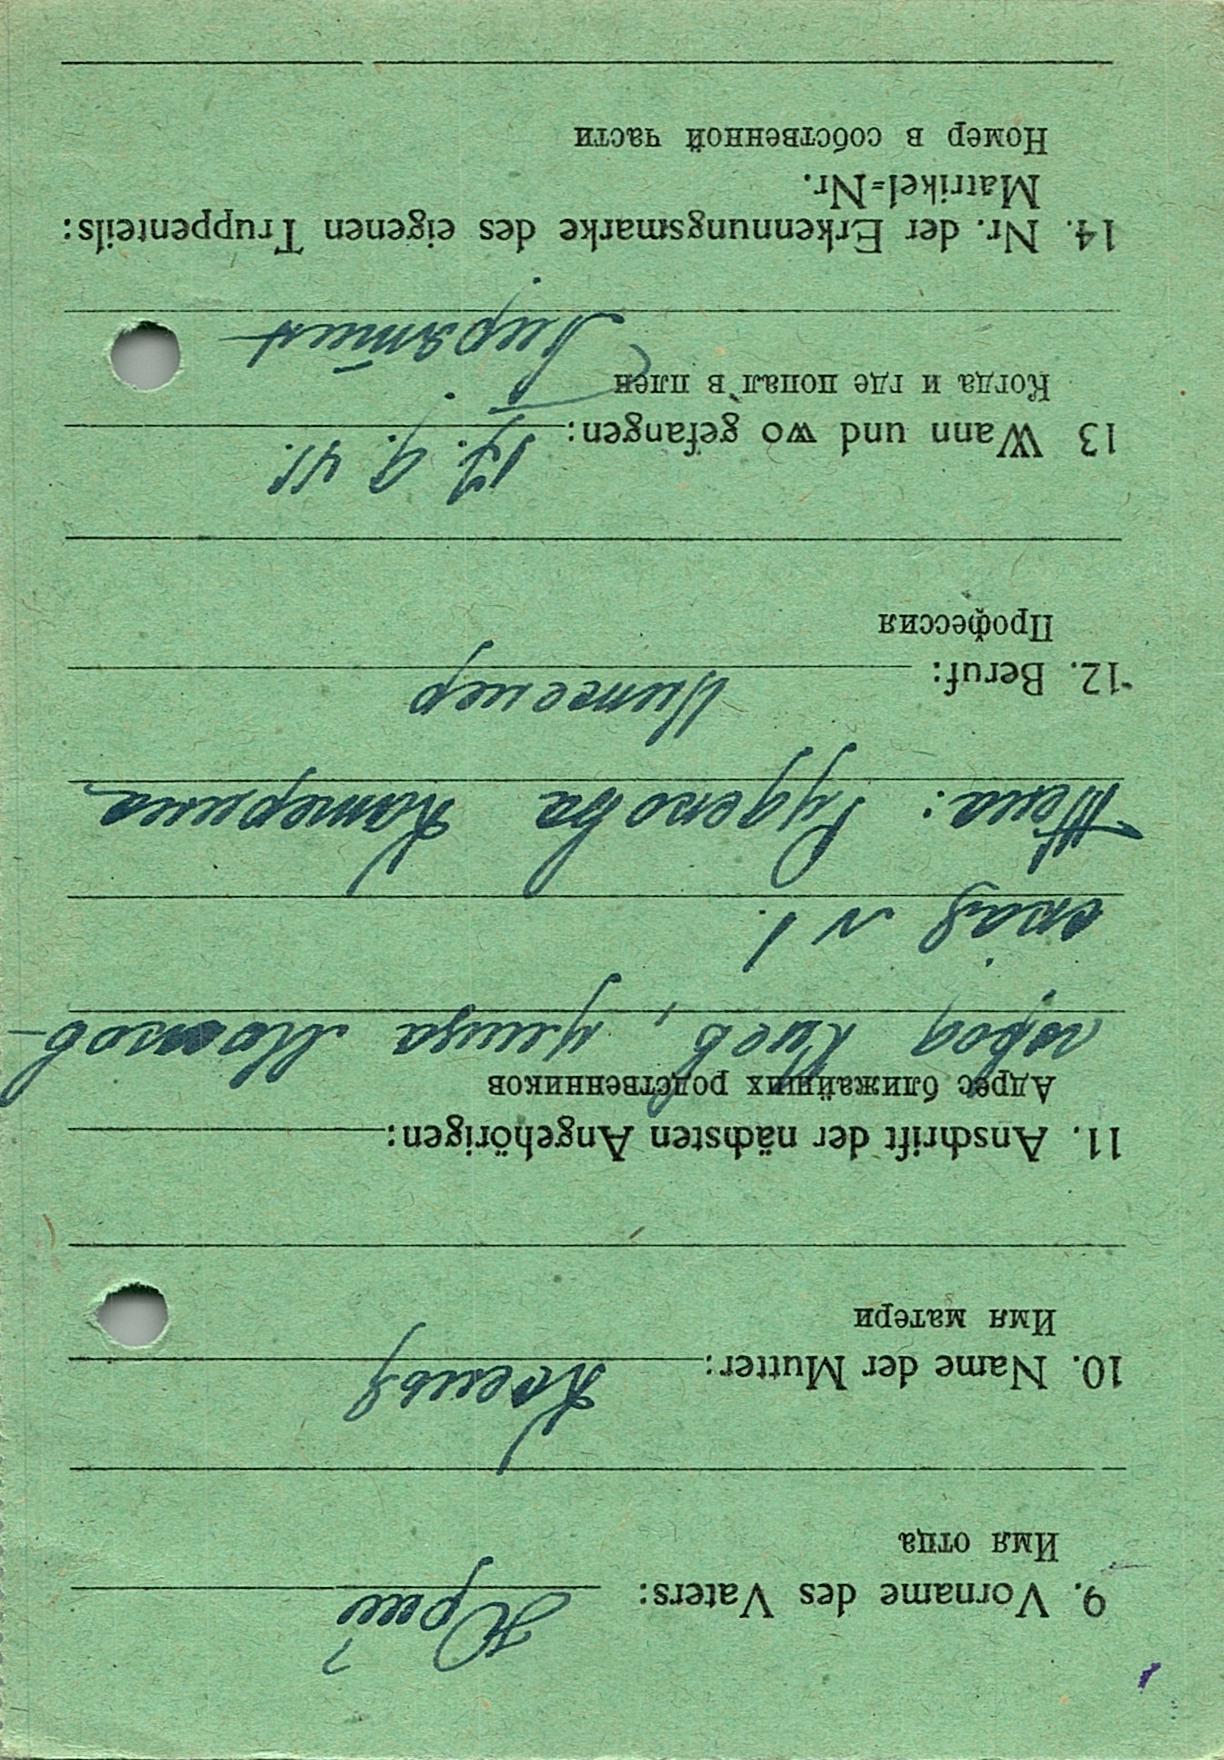 9. Vorname des Vaters: Юрий
Имя отца
10. Name der Mutter: Ксенья
Имя матери
11. Anschrift der nächsten Angehörigen:
Адрес ближайших родственников
город Киев, улица
№ 1.
Жена: Рудекова Катерина
12. Beruf: Инженер
Профессия
13 Wann und wo gefangen: 19. 9. 41.
Когда и где попал в плен
Пирятин
14. Nr. der Erkennungsmarke des eigenen Truppenteils:
Matrikel=Nr.
Номер в собственной части